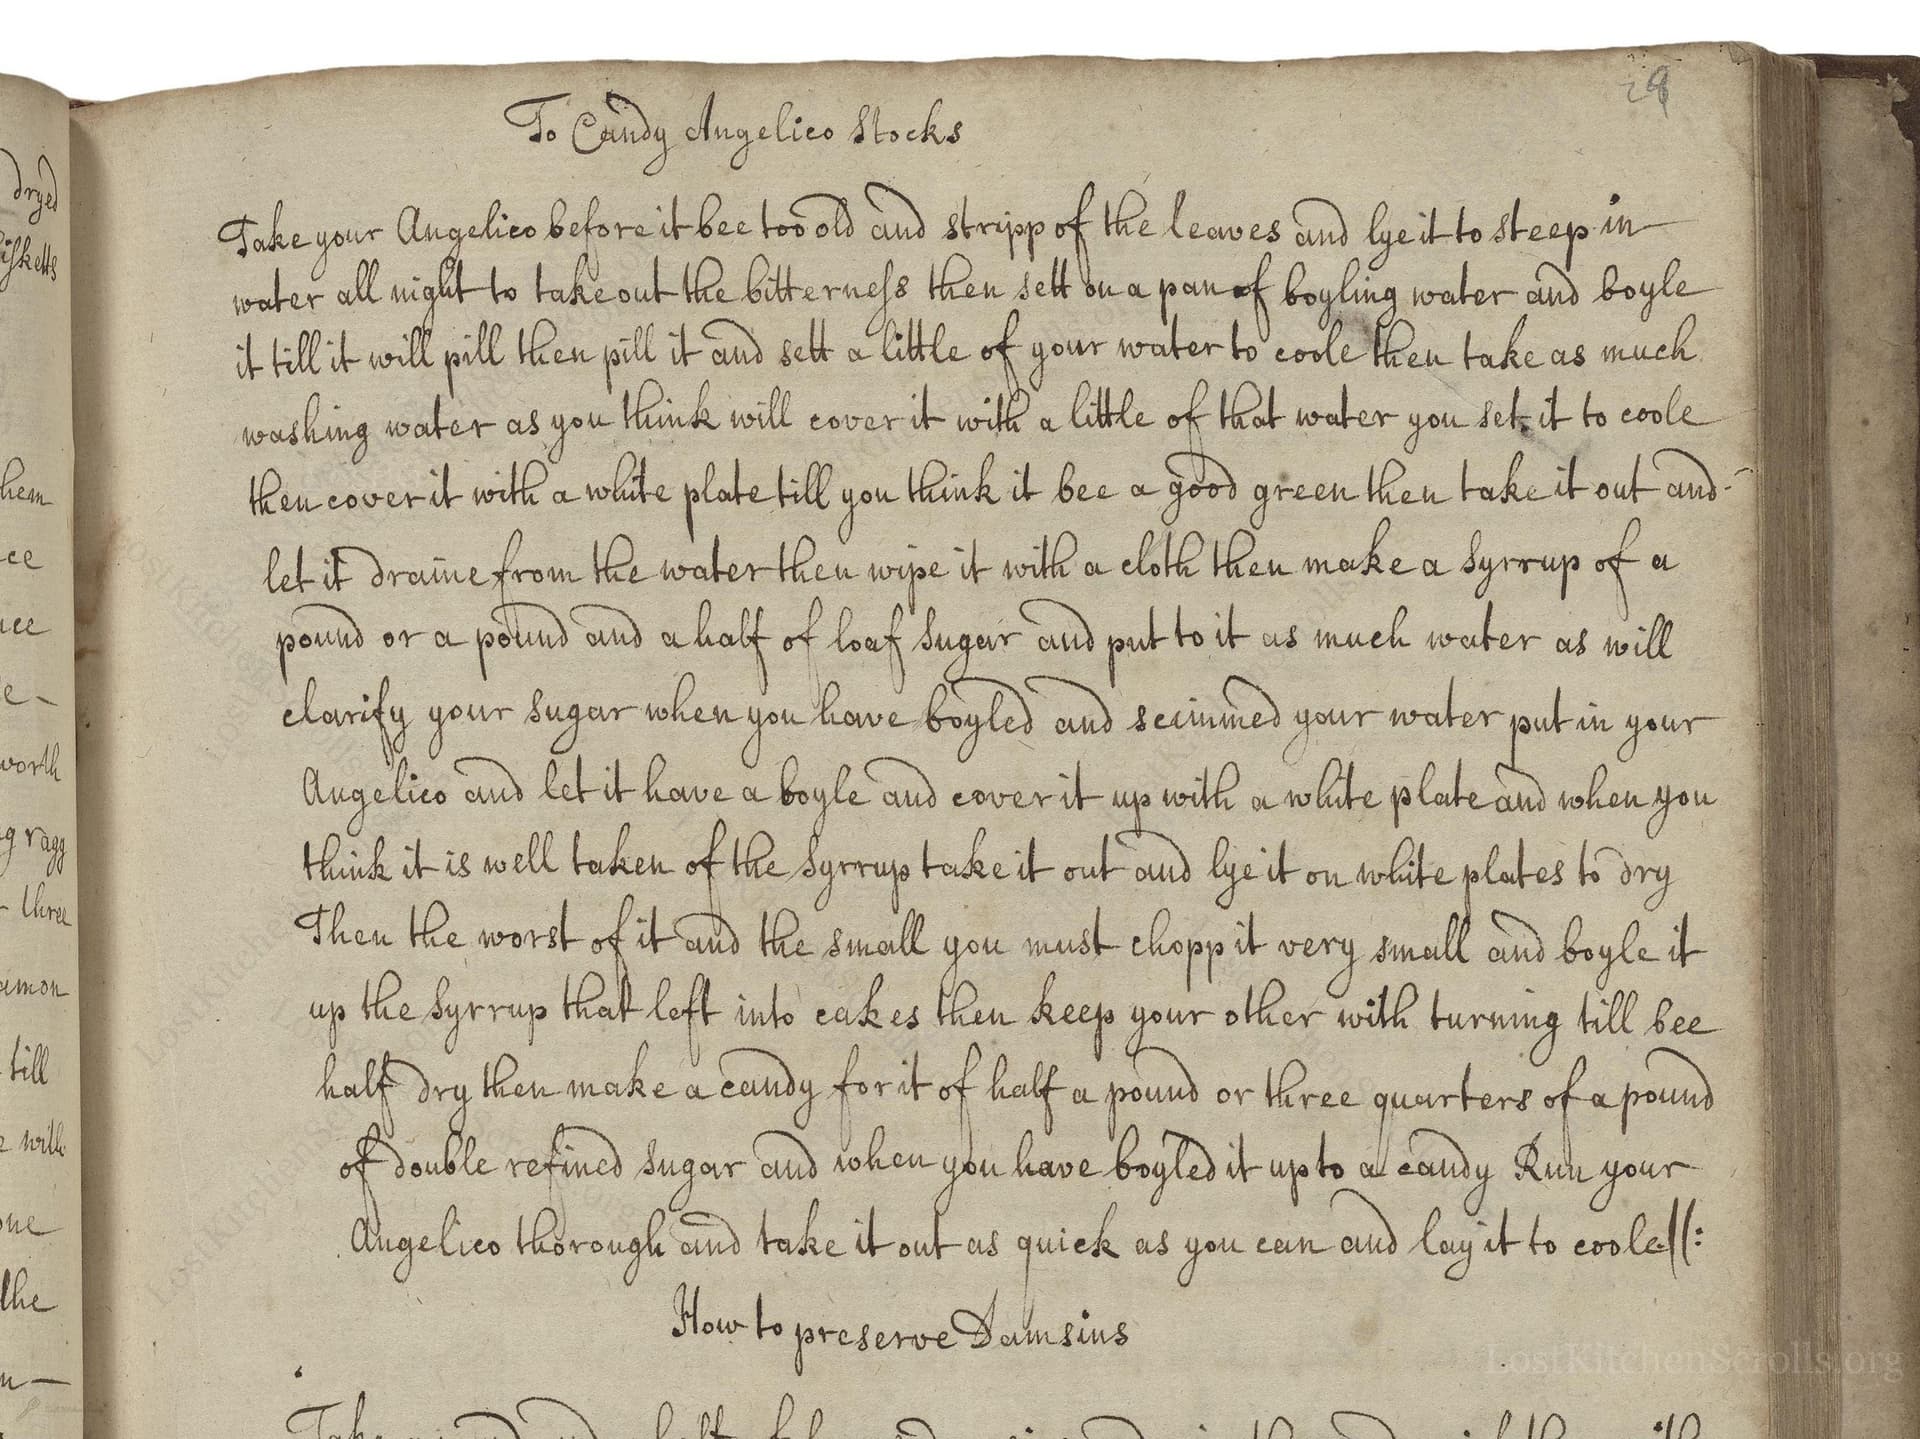 29
To Candy Angelico Stocks
Take your Angelico before it bee too old and stripp of the leaves and lye it to steep in
water all night to take out the bitterness then sett on a pan of boyling water and boyle
it till it will pill then pill it and sett a little of your water to coole then take as much
washing water as you think will cover it with a little of that water you set it to coole
then cover it with a white plate till you think it bee a good green then take it out and
let it draine from the water then wipe it with a cloth then make a Syrrup of a
pound or a pound and a half of loaf Sugar and put to it as much water as will
clarify your Sugar when you have boyled and scimmed your water put in your
Angelico and let it have a boyle and cover it up with a white plate and when you
think it is well taken of the Syrrup take it out and lye it on white plates to dry
Then the worst of it and the small you must chopp it very small and boyle it
up the Syrrup that left into cakes then keep your other with turning till bee
half dry then make a candy for it of half a pound or three quarters of a pound
of double refined Sugar and when you have boyled it up to a candy Run your
Angelico thorough and take it out as quick as you can and lay it to coole
How to preserve Damsins
dryed
them
worth
ragg
three
till
one
the
LostKitchenScrolls.org